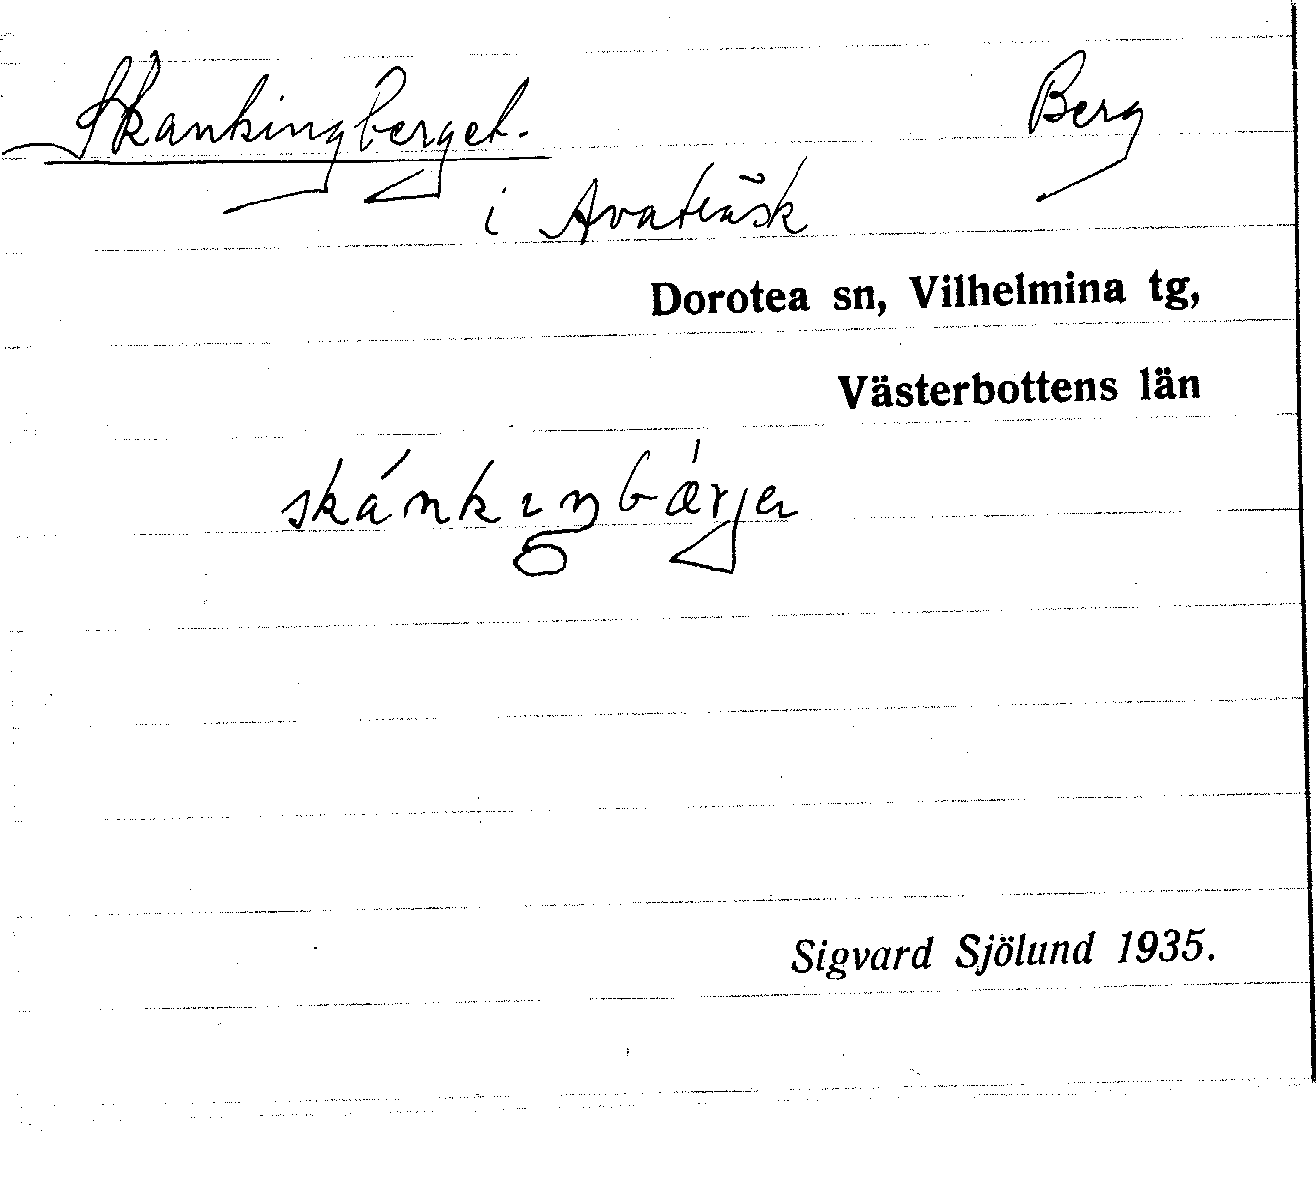 Skankingberget. Berg
i Avaträsk
Dorotea sn, Vilhelmina tg,
Västerbottens län
Sigvard Sjölund 1935.